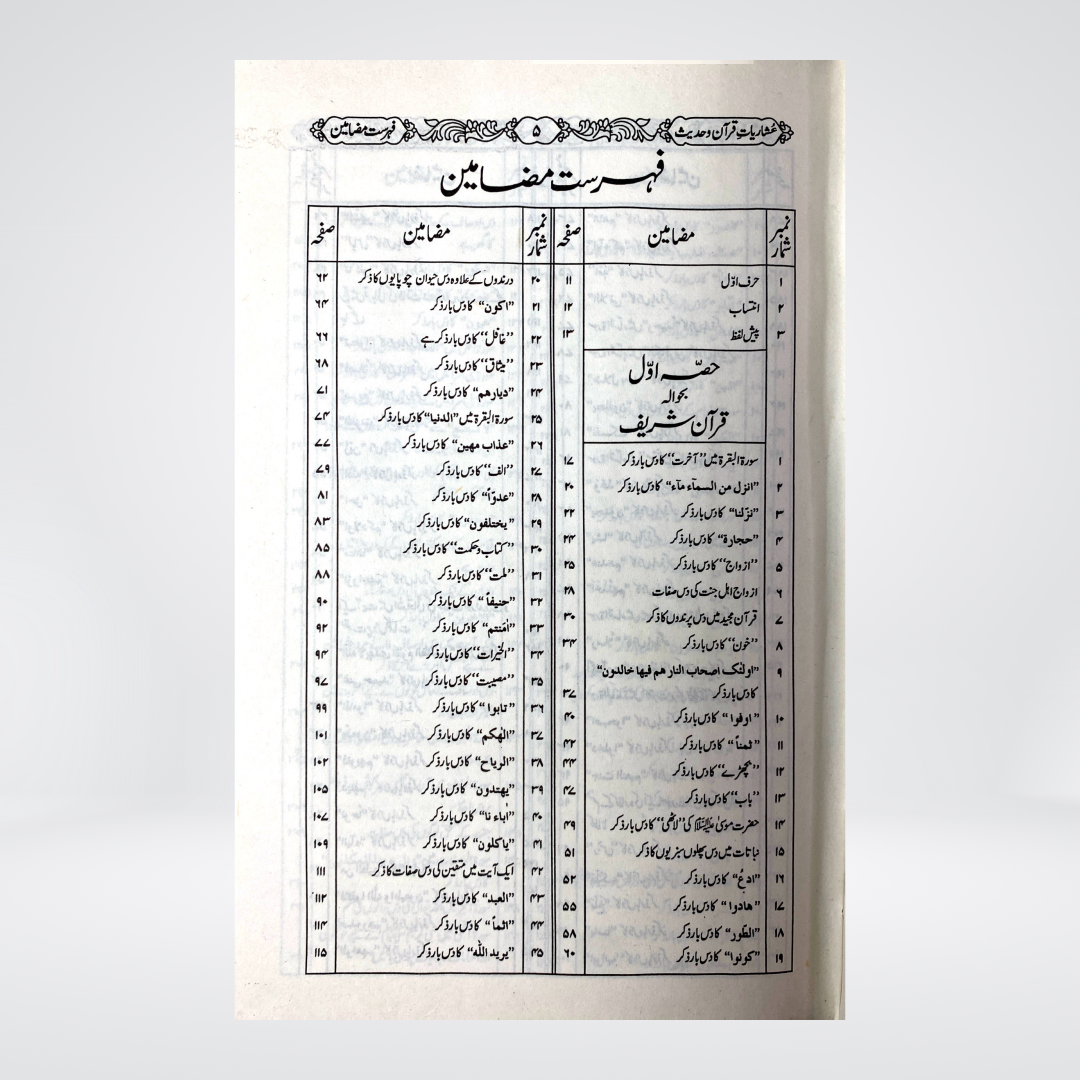 عُشاریاتِ قرآن و حدیث ۵ فہرست مضامین
فہرست مضامین
نمبر شمار مضامین صفحہ
۱ حرف اوّل ۱۱
۲ انتساب ۱۲
۳ پیش لفظ ۱۳
حصّہ اوّل
بحوالہ
قرآن شریف
۱ سورۃ البقرۃ میں ”آخرت“ کا دس بار ذکر ۱۷
۲ ”انزل من السمآء مآء“ کا دس بار ذکر ۲۰
۳ ”نزّلنا“ کا دس بار ذکر ۲۲
۴ ”حجارة“ کا دس بار ذکر ۲۴
۵ ”ازواج“ کا دس بار ذکر ۲۵
۶ ازواج اہل جنت کی دس صفات ۲۸
۷ قرآن مجید میں دس پرندوں کا ذکر ۳۰
۸ ”خون“ کا دس بار ذکر ۳۴
۹ ”اولئک اصحاب النار هم فيها خالدون“
کا دس بار ذکر ۳۷
۱۰ ”اوفوا“ کا دس بار ذکر ۴۰
۱۱ ”ثمناً“ کا دس بار ذکر ۴۲
۱۲ ”بچھڑے“ کا دس بار ذکر ۴۴
۱۳ ”باب“ کا دس بار ذکر ۴۷
۱۴ حضرت موسیٰ علیہ السلام کی ”لاٹھی“ کا دس بار ذکر ۴۹
۱۵ نباتات میں دس پھلوں سبزیوں کا ذکر ۵۱
۱۶ ”ادعُ“ کا دس بار ذکر ۵۲
۱۷ ”هادوا“ کا دس بار ذکر ۵۵
۱۸ ”الطّور“ کا دس بار ذکر ۵۸
۱۹ ”کونوا“ کا دس بار ذکر ۶۰
نمبر شمار مضامین صفحہ
۲۰ درندوں کے علاوہ دس حیوان چوپایوں کا ذکر ۶۲
۲۱ ”اکون“ کا دس بار ذکر ۶۴
۲۲ ”غافل“ کا دس بار ذکر ہے ۶۶
۲۳ ”میثاق“ کا دس بار ذکر ۶۸
۲۴ ”دیارهم“ کا دس بار ذکر ۷۱
۲۵ سورۃ البقرۃ میں ”الدنیا“ کا دس بار ذکر ۷۴
۲۶ ”عذاب مهین“ کا دس بار ذکر ۷۷
۲۷ ”الف“ کا دس بار ذکر ۷۹
۲۸ ”عدوّاً“ کا دس بار ذکر ۸۱
۲۹ ”یختلفون“ کا دس بار ذکر ۸۳
۳۰ ”کتاب و حکمت“ کا دس بار ذکر ۸۵
۳۱ ”ملت“ کا دس بار ذکر ۸۸
۳۲ ”حنیفاً“ کا دس بار ذکر ۹۰
۳۳ ”اٰمنتم“ کا دس بار ذکر ۹۲
۳۴ ”الخیرات“ کا دس بار ذکر ۹۴
۳۵ ”مصیبت“ کا دس بار ذکر ۹۷
۳۶ ”تابوا“ کا دس بار ذکر ۹۹
۳۷ ”الٰهکم“ کا دس بار ذکر ۱۰۱
۳۸ ”الریاح“ کا دس بار ذکر ۱۰۲
۳۹ ”یهتدون“ کا دس بار ذکر ۱۰۵
۴۰ ”اٰباء نا“ کا دس بار ذکر ۱۰۷
۴۱ ”یاکلون“ کا دس بار ذکر ۱۰۹
۴۲ ایک آیت میں متقین کی دس صفات کا ذکر ۱۱۱
۴۳ ”العبد“ کا دس بار ذکر ۱۱۲
۴۴ ”اثماً“ کا دس بار ذکر ۱۱۴
۴۵ ”یرید اللّٰه“ کا دس بار ذکر ۱۱۵